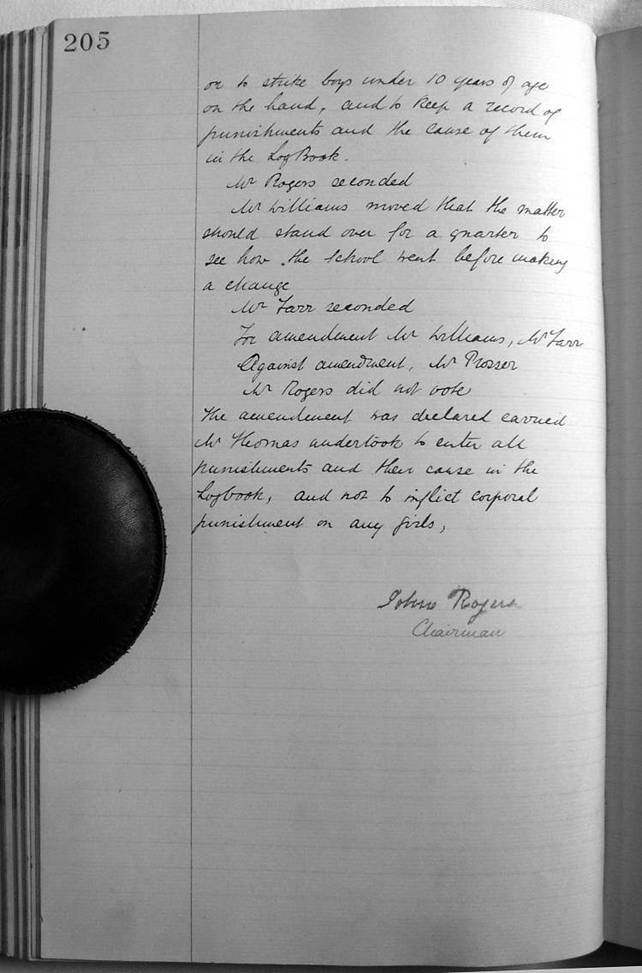 205
or to strike boys under 10 years of age
on the hand, and to keep a record of
punishments and the cause of them
in the LogBook.
Mr Rogers seconded
Mr Williams moved that the matter
should stand over for a quarter to
see how the school went before making
a change
Mr Farr seconded
For amendment Mr Williams, Mr Farr
Against amendment, Mr Prosser
Mr Rogers did not vote
The amendment was declared carried
Mr Thomas undertook to enter all
punishments and their cause in the
Logbook, and not to inflict corporal
punishment on any girls,
John Rogers
Chairman